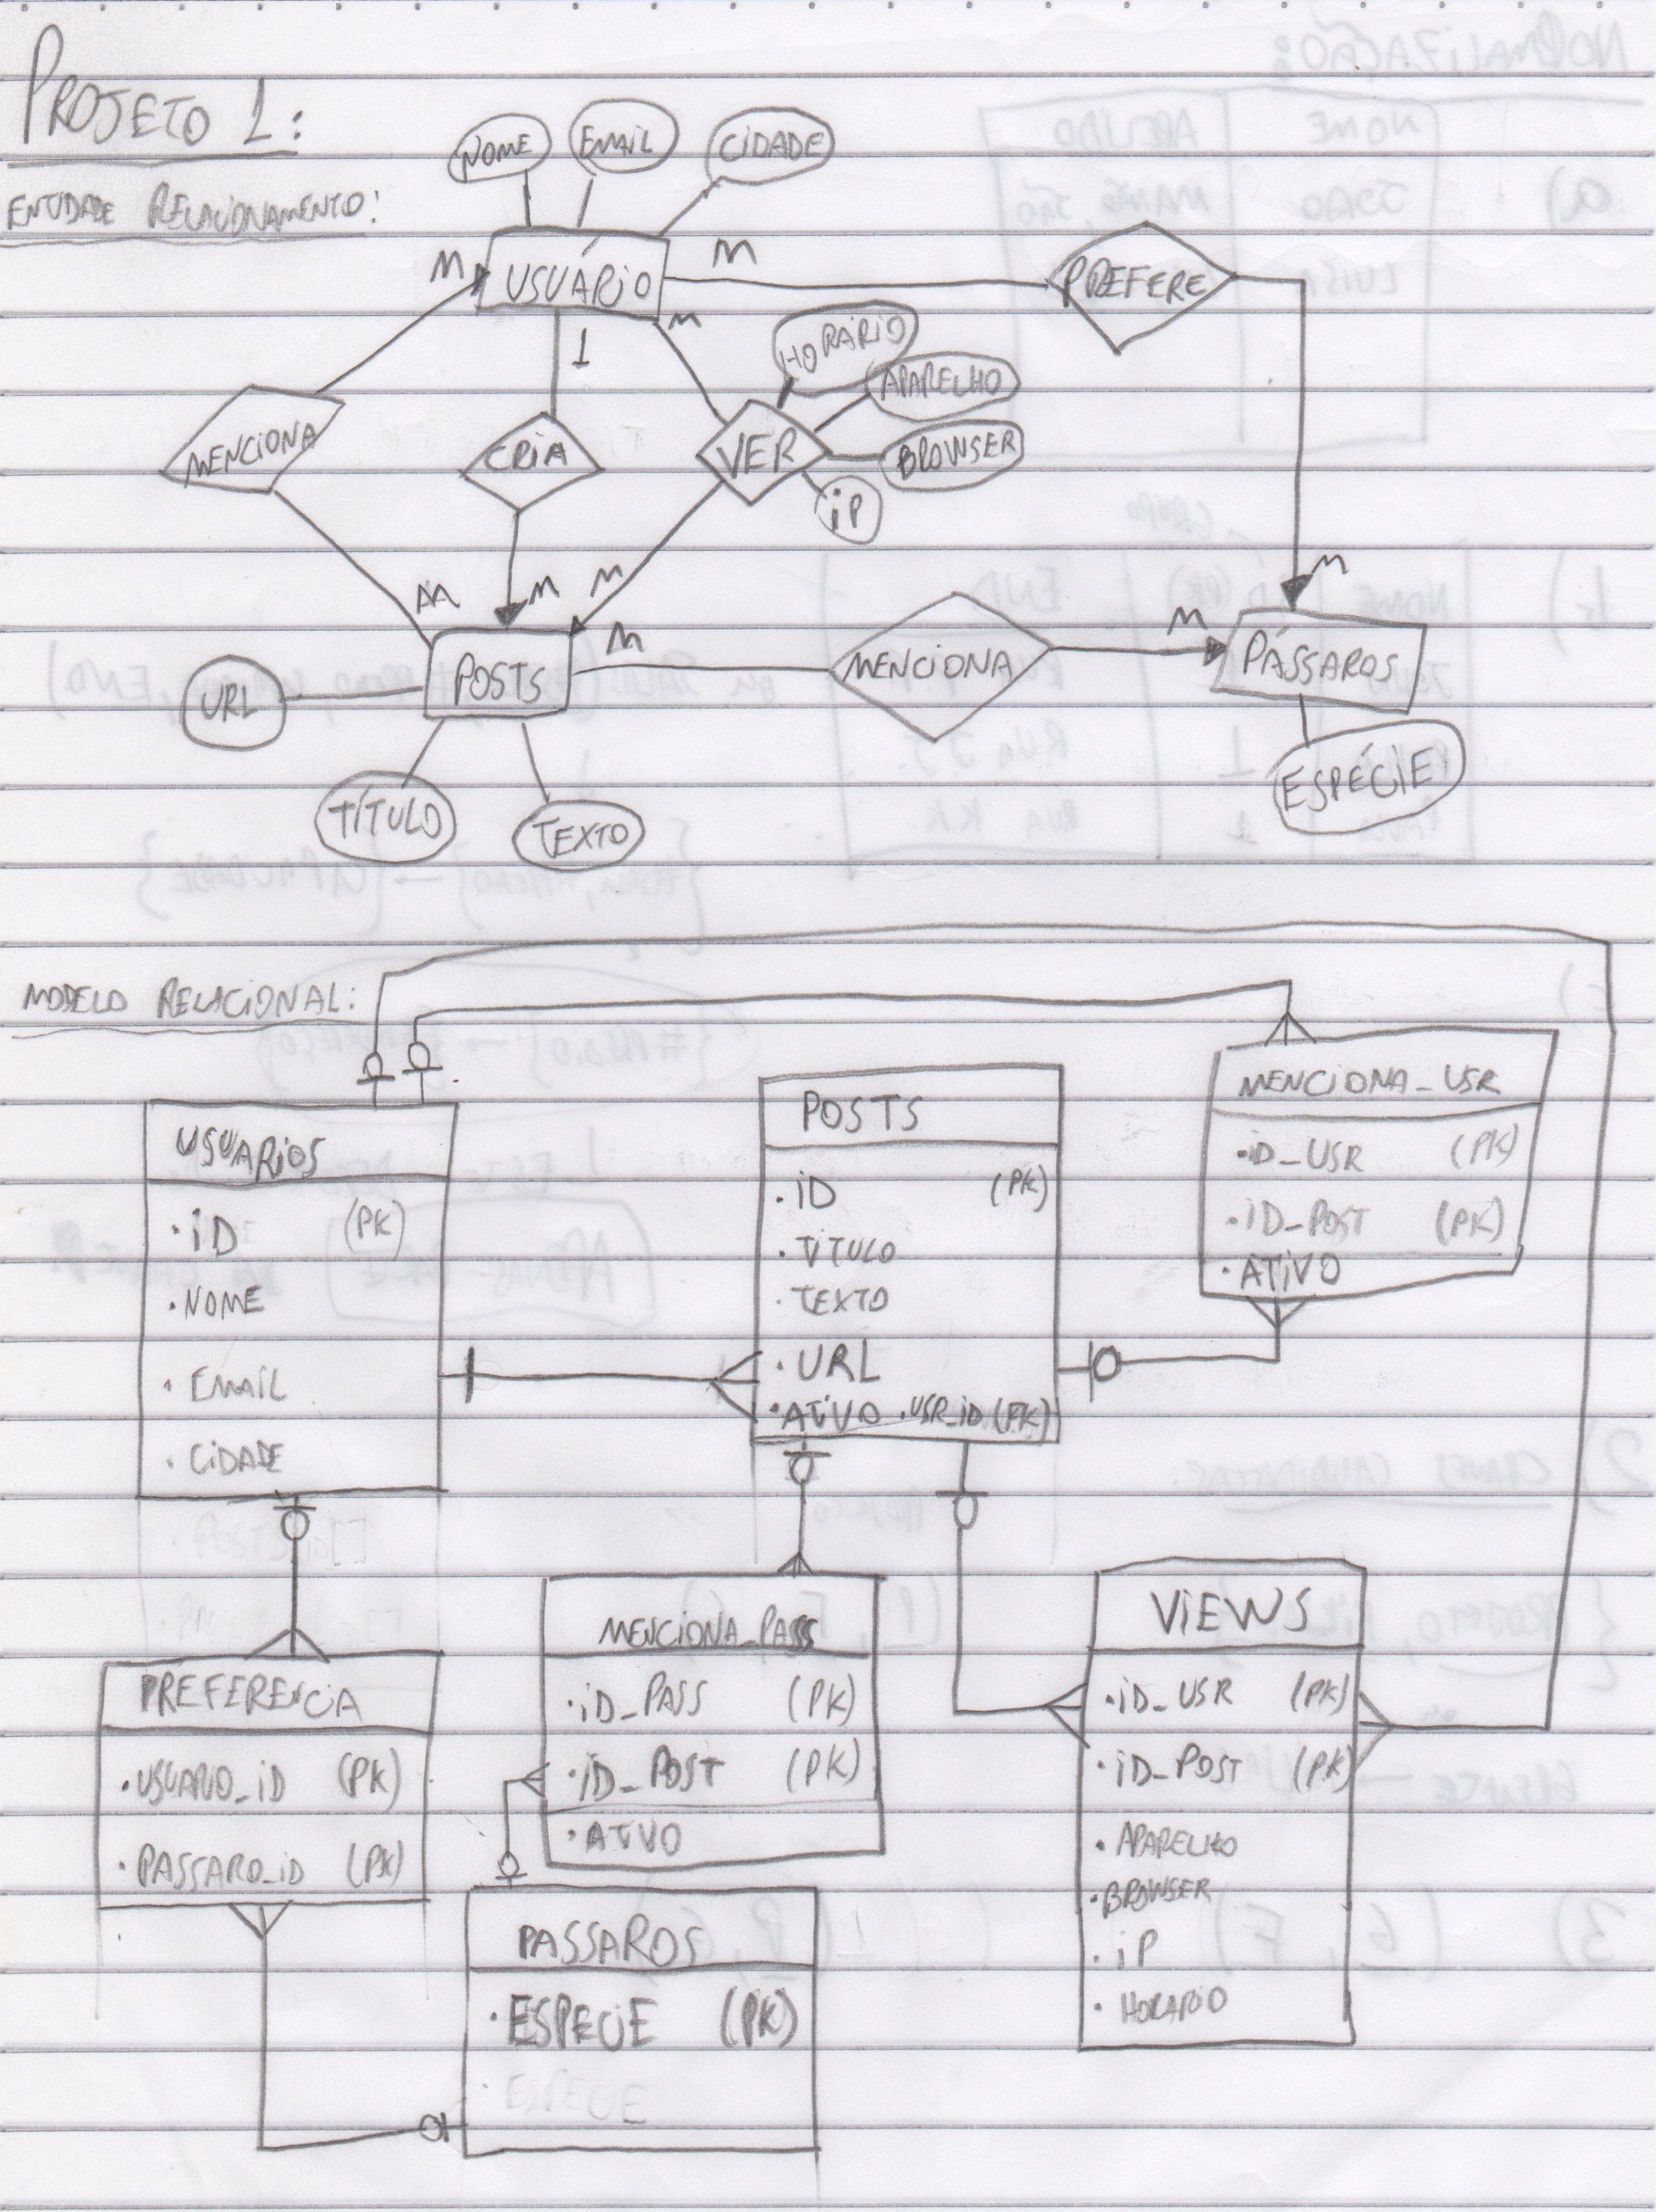 PROJETO 1:
ENTIDADE RELACIONAMENTO:
NOME
EMAIL
CIDADE
M
USUÁRIO
M
PREFERE
1
M
HORÁRIO
APARELHO
BROWSER
IP
MENCIONA
CRIA
VER
M
M
M
M
POSTS
M
MENCIONA
M
PÁSSAROS
URL
TÍTULO
TEXTO
ESPÉCIE
MODELO RELACIONAL:
USUARIOS
·ID (PK)
·NOME
·EMAIL
·CIDADE
POSTS
·ID (PK)
·TITULO
·TEXTO
·URL
·ATIVO ·USR_ID (FK)
MENCIONA_USR
·ID_USR (PK)
·ID_POST (PK)
·ATIVO
PREFERENCIA
·USUARIO_ID (PK)
·PASSARO_ID (PK)
MENCIONA_PASS
·ID_PASS (PK)
·ID_POST (PK)
·ATIVO
VIEWS
·ID_USR (PK)
·ID_POST (PK)
·APARELHO
·BROWSER
·IP
·HORARIO
PASSAROS
·ESPECIE (PK)
·ESPECIE